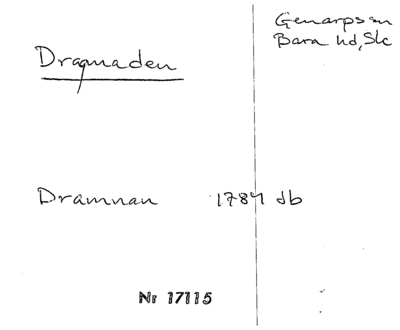 Dragmaden
Genarps sn
Bara hd, Sk
Dramnan 1784 db
Nr 17115